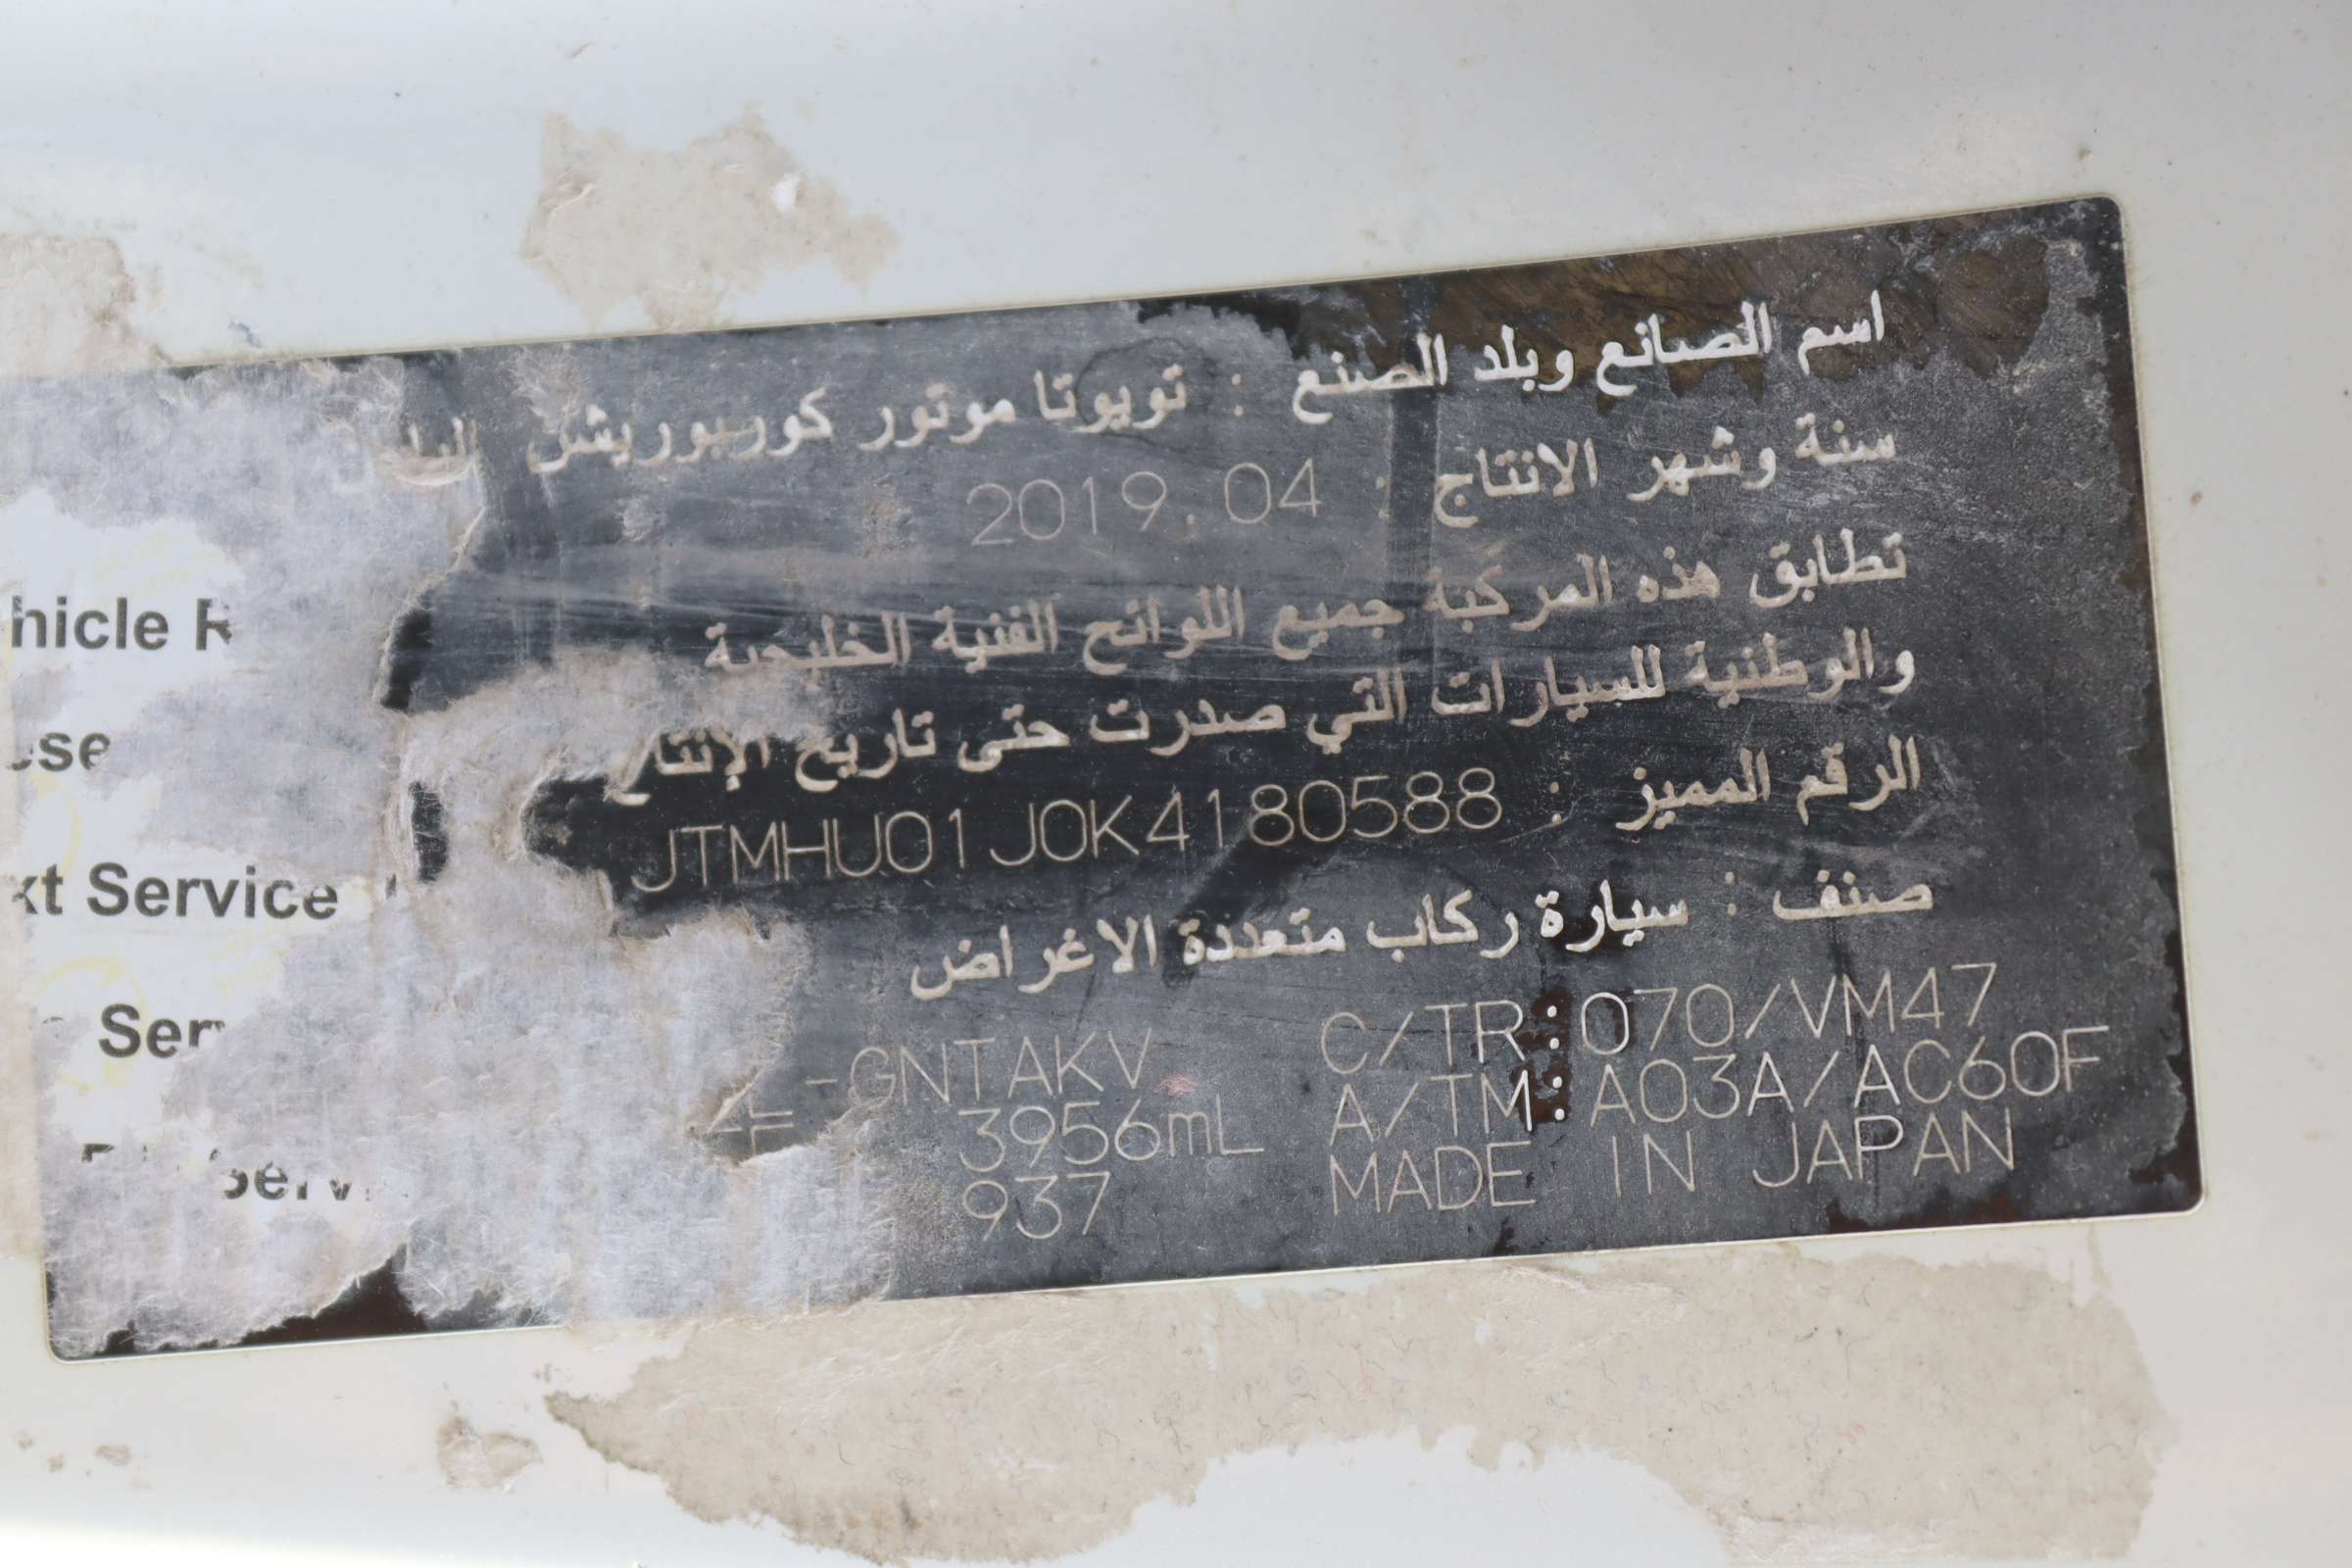 اسم الصانع وبلد الصنع : تويوتا موتور كوربوريشن
سنة وشهر الانتاج : 2019.04
تطابق هذه المركبة جميع اللوائح الفنية الخليجية
والوطنية للسيارات التي صدرت حتى تاريخ
الرقم المميز : JTMHU01J0K4180588
صنف : سيارة ركاب متعددة الاغراض
-GNTAKV C/TR:070/VM47
3956mL A/TM:A03A/AC60F
937 MADE IN JAPAN
Service